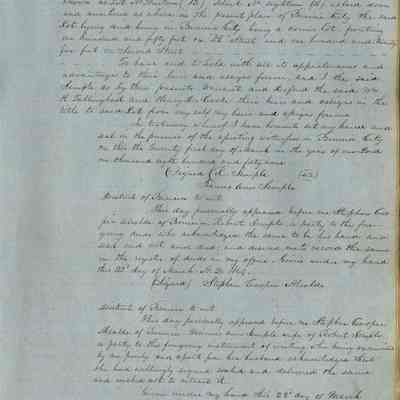 known as Lot N° thirteen (13) Select N° eighteen (18) as laid down
and numbered as above in the present plan of Benicia City the said
Lots lying and being in Benicia City being a corner lot fronting
one hundred and fifty feet on St Street and one hundred and twenty
five feet on Second Street
To have and to hold with all its appurtenances and
advantages to their heirs and assigns forever, and I the said
Semple do by these presents warrant and defend the said Wm
and Henry their heirs and assigns in the
title to said Lot from my self my heirs and assigns forever
In testimony whereof I have hereunto set my hand and
seal in the presence of the attesting witnesses in Benicia City
on this the twenty first day of March in the year of our Lord
one thousand eight hundred and forty
(Signed) R. Semple (LS)
Frances Ann Semple
District of Benicia to wit
This day personally appeared before me Stephen Coo
per Alcalde of Benicia Robert Semple a party to the fore
going deed who acknowledged the same to be his hand and
seal and act and deed, and desired me to record the same
in the register of deeds in my office. Given under my hand
this 22d day of March A.D.
(Signed) Stephen Cooper Alcalde
District of Benicia to wit
This day personally appeared before me Stephen Cooper
Alcalde of Benicia Frances Ann Semple wife of Robert Semple
a party to the foregoing instrument of writing who being examined
by me privily and apart from her husband acknowledged that
she had willingly signed sealed and delivered the same
and wished not to retract it.
Given under my hand this 22d day of March